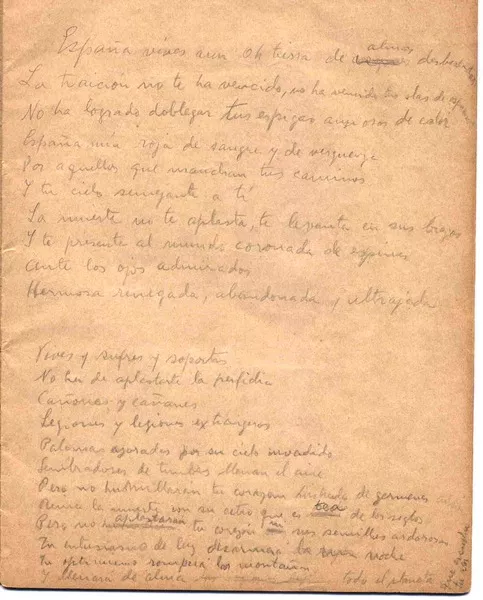 España vives aun Oh tierra de almas desbordadas
La traición no te ha vencido, no ha vencido tus olas de
No ha logrado doblegar tus espigas ansiosas de calor
España mía roja de sangre y de vergüenza
Por aquellos que manchan tus caminos
Y tu cielo semejante a tí
La muerte no te aplasta, te levanta en sus brazos
Y te presenta al mundo coronada de espinas
Ante los ojos admirados
Hermosa renegada, abandonada y ultrajada
Vives y sufres y soportas
No ha de aplastarte la perfidia
Cañones y cañones
Legiones y legiones extrangeros
Palomas azoradas por su cielo invadido
Sembradores de tumbas llenan el aire
Pero no humillarán tu corazón de germenes
la muerte con su cetro que es tea de los siglos
Pero no aplastarán tu corazón ni sus semillas ardorosas
Tu entusiasmo de luz la noche
Tu optimismo romperá las montañas
Y llenará de alma todo el planeta